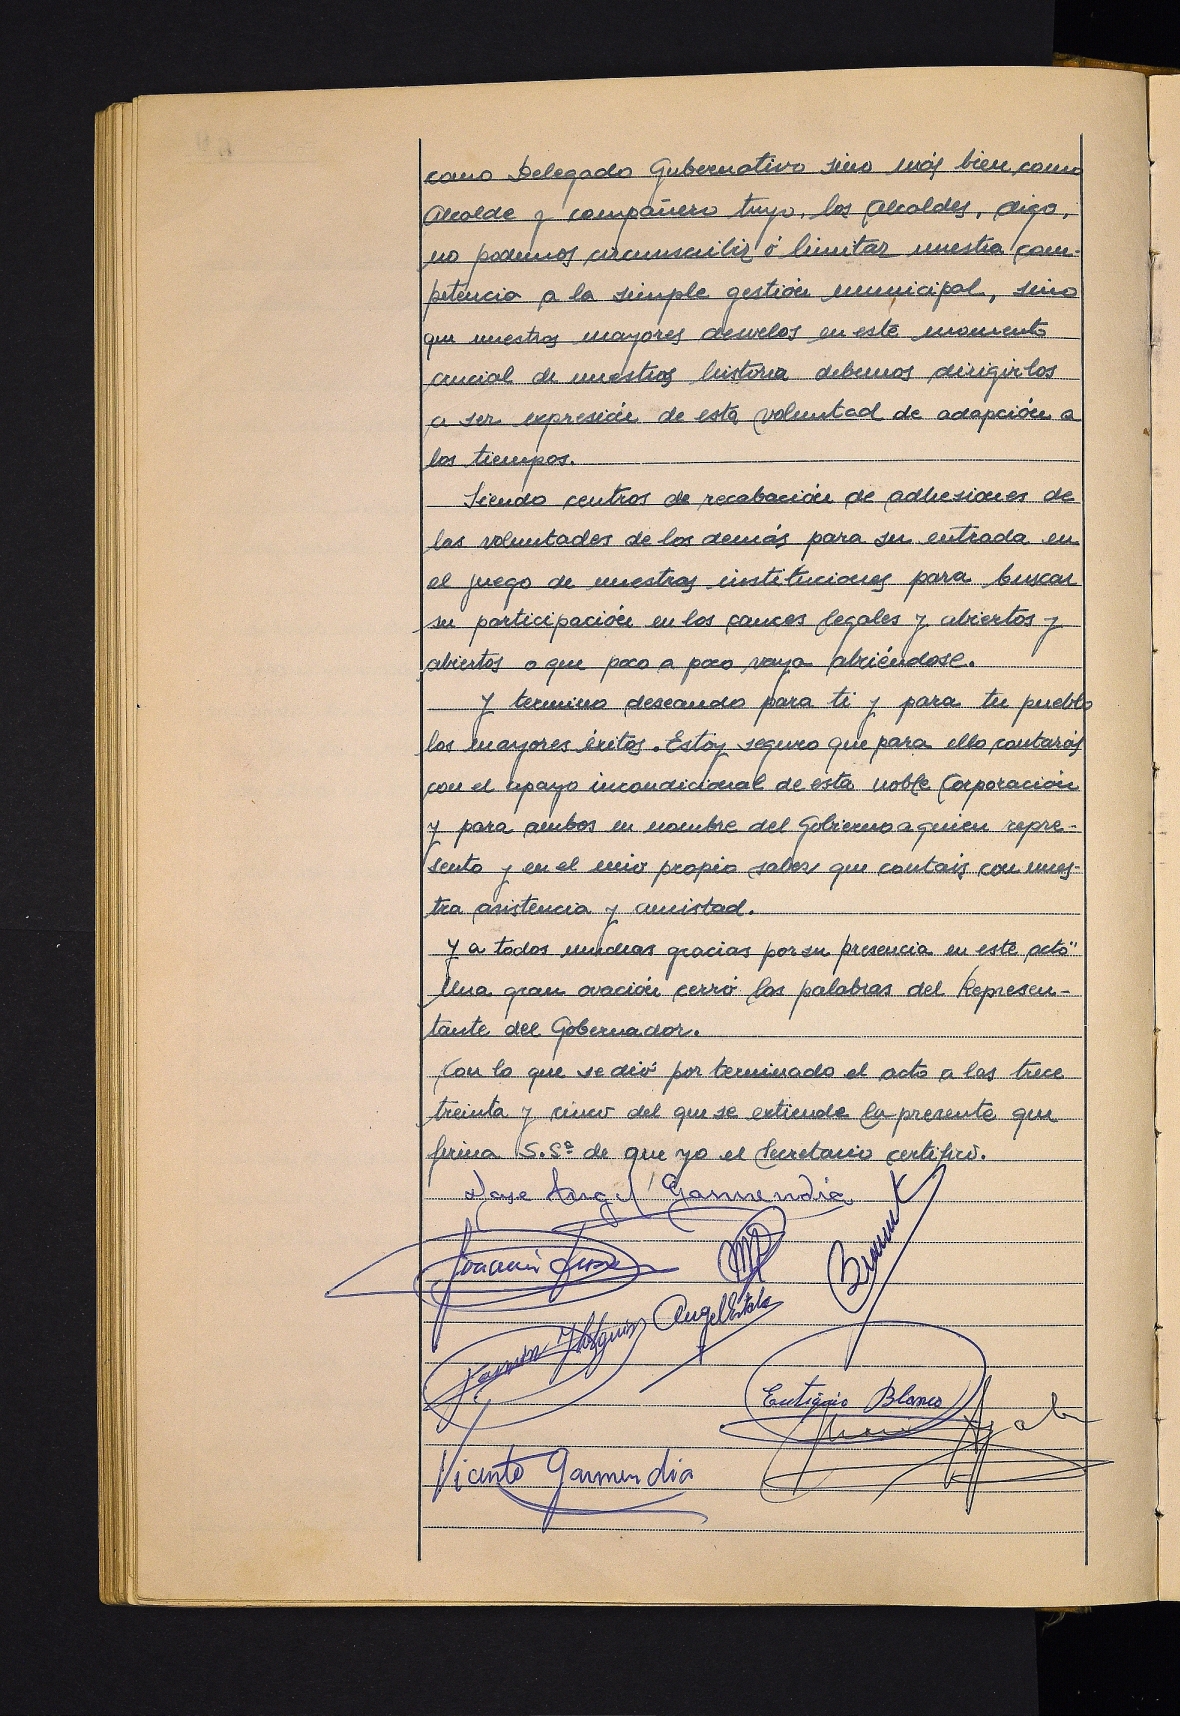 como Delegado Gubernativo sino más bien como
Alcalde y compañero tuyo, los Alcaldes, digo,
no podemos circunscibir ó limitar nuestra com-
petencia a la simple gestión municipal, sino
que nuestros mayores desvelos en este momento
crucial de nuestros historia debemos dirigirlos
a ser expresión de esta voluntad de adapción a
los tiempos.
Siendo centros de recabación de adhesiones de
las voluntades de los demás para su entrada en
el juego de nuestras instituciones para buscar
su participación en los cauces legales y abiertos y
abiertos o que poco a poco vaya abriéndose.
Y termino deseando para ti y para tu pueblo
los mayores éxitos. Estoy seguro que para ello contarás
con el apoyo incondicional de esta noble Corporación
y para ambos en nombre del Gobierno a quien repre-
sento y en el mio propio saber que contais con nues-
tra asistencia y amistad.
Y a todos muchas gracias por su presencia en este acto"
Una gran ovación cerró las palabras del Represen-
tante del Gobernador.
Con lo que se dió por terminado el acto a las trece
treinta y cinco del que se extiende la presente que
firma S.Sª de que yo el Secretario certifico.
Jose Angel Garmendia
Joaquin
Ramon
Angel
Eutiquio Blanco
Vicente Garmendia